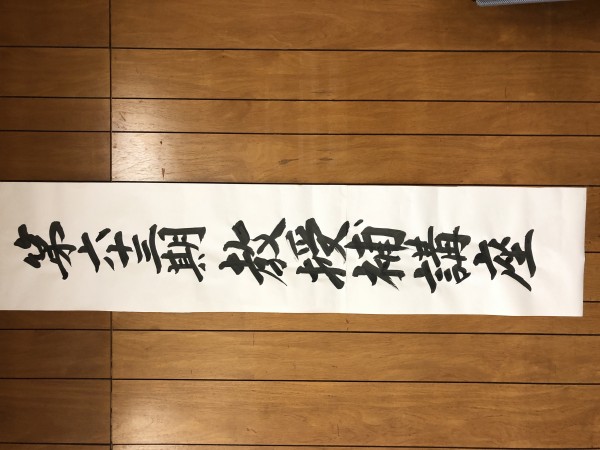 第六十三期 教授補講座